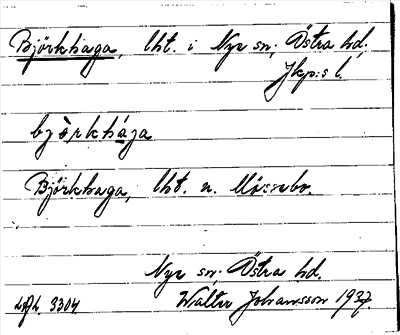 Björkhaga, lht. i Nye sn; Östra hd;
Jkp:s l.
bjòrkhága
Björkhaga, lht. u.
Nye sn; Östra hd.
Walter Johansson 1937.
3304.